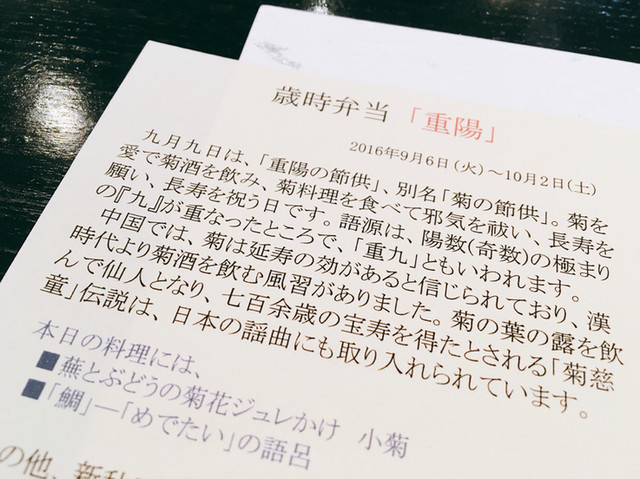 歳時弁当 「重陽」
2016年9月6日(火)～10月2日(土)
九月九日は、「重陽の節供」、別名「菊の節供」。菊を
愛で菊酒を飲み、菊料理を食べて邪気を祓い、長寿を
願い、長寿を祝う日です。語源は、陽数(奇数)の極まり
の『九』が重なったところで、「重九」ともいわれます。
中国では、菊は延寿の効があると信じられており、漢
時代より菊酒を飲む風習がありました。菊の葉の露を飲
んで仙人となり、七百余歳の宝寿を得たとされる「菊慈
童」伝説は、日本の謡曲にも取り入れられています。
本日の料理には、
■蕪とぶどうの菊花ジュレかけ 小菊
■「鯛」―「めでたい」の語呂
の他、新秋